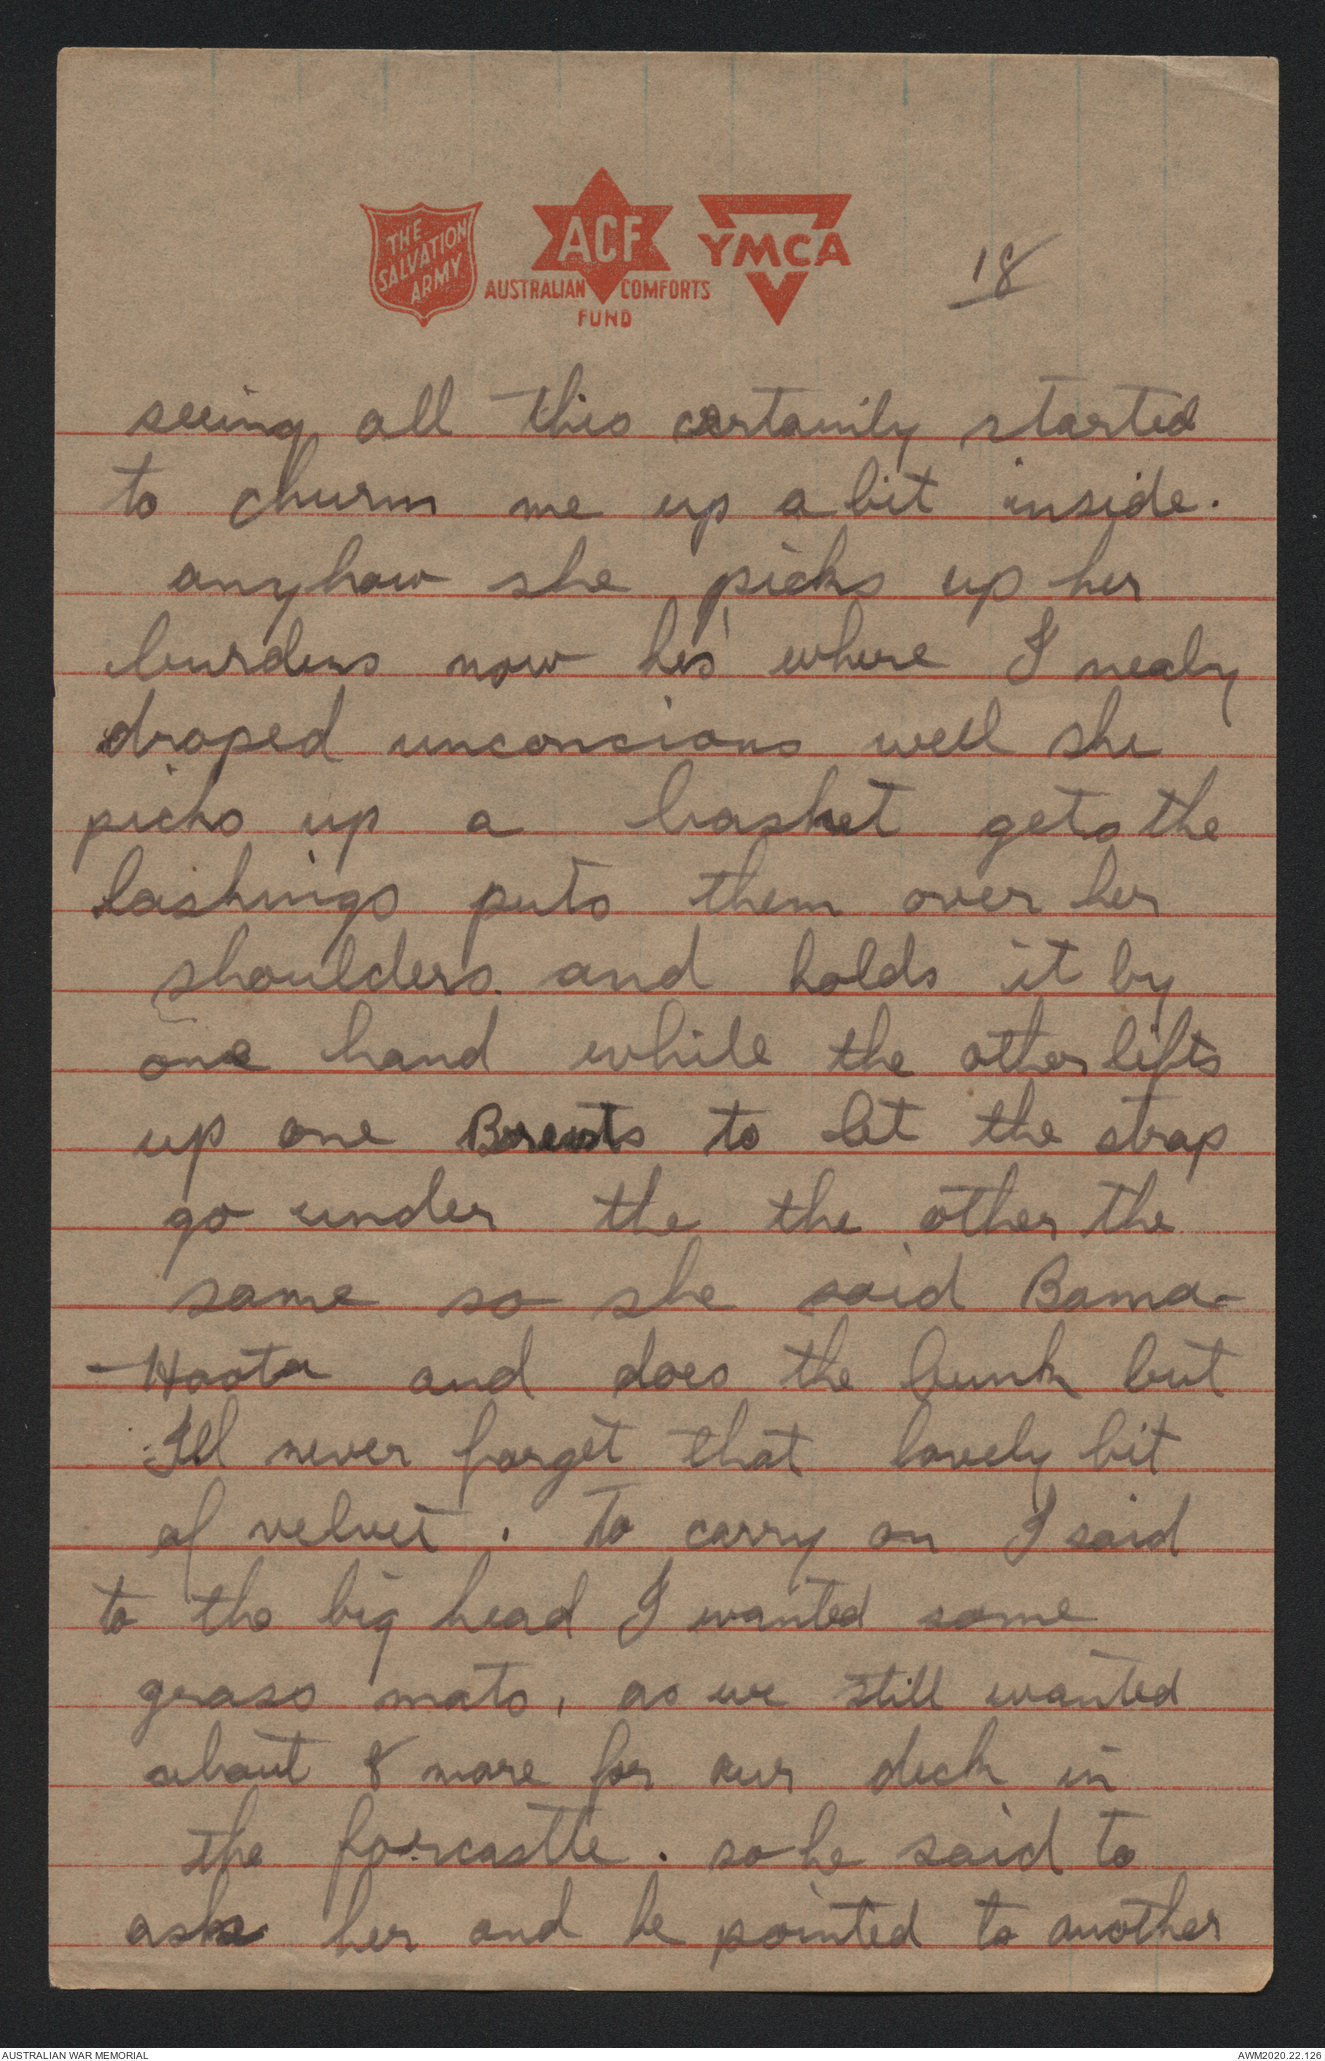 THE
SALVATION
ARMY
ACF
AUSTRALIAN COMFORTS
FUND
YMCA
18
seeing all this certainly started
to churm me up a bit inside.
anyhow she picks up her
burdens now hes' where I nealy
droped unconscious well she
picks up a basket gets the
lashings puts them over her
shoulders. and holds it by
one hand while the other lifts
up one Breasts to let the strap
go under the the other the
same so she said Bama-
-Hoota and does the bunk but
I'll never forget that lovely bit
of velvet. To carry on I said
to the big head I wanted some
grass mats, as we still wanted
about 8 more for our deck in
the forcastle. so he said to
ask her and he pointed to another
AUSTRALIAN WAR MEMORIAL
AWM2020.22.126